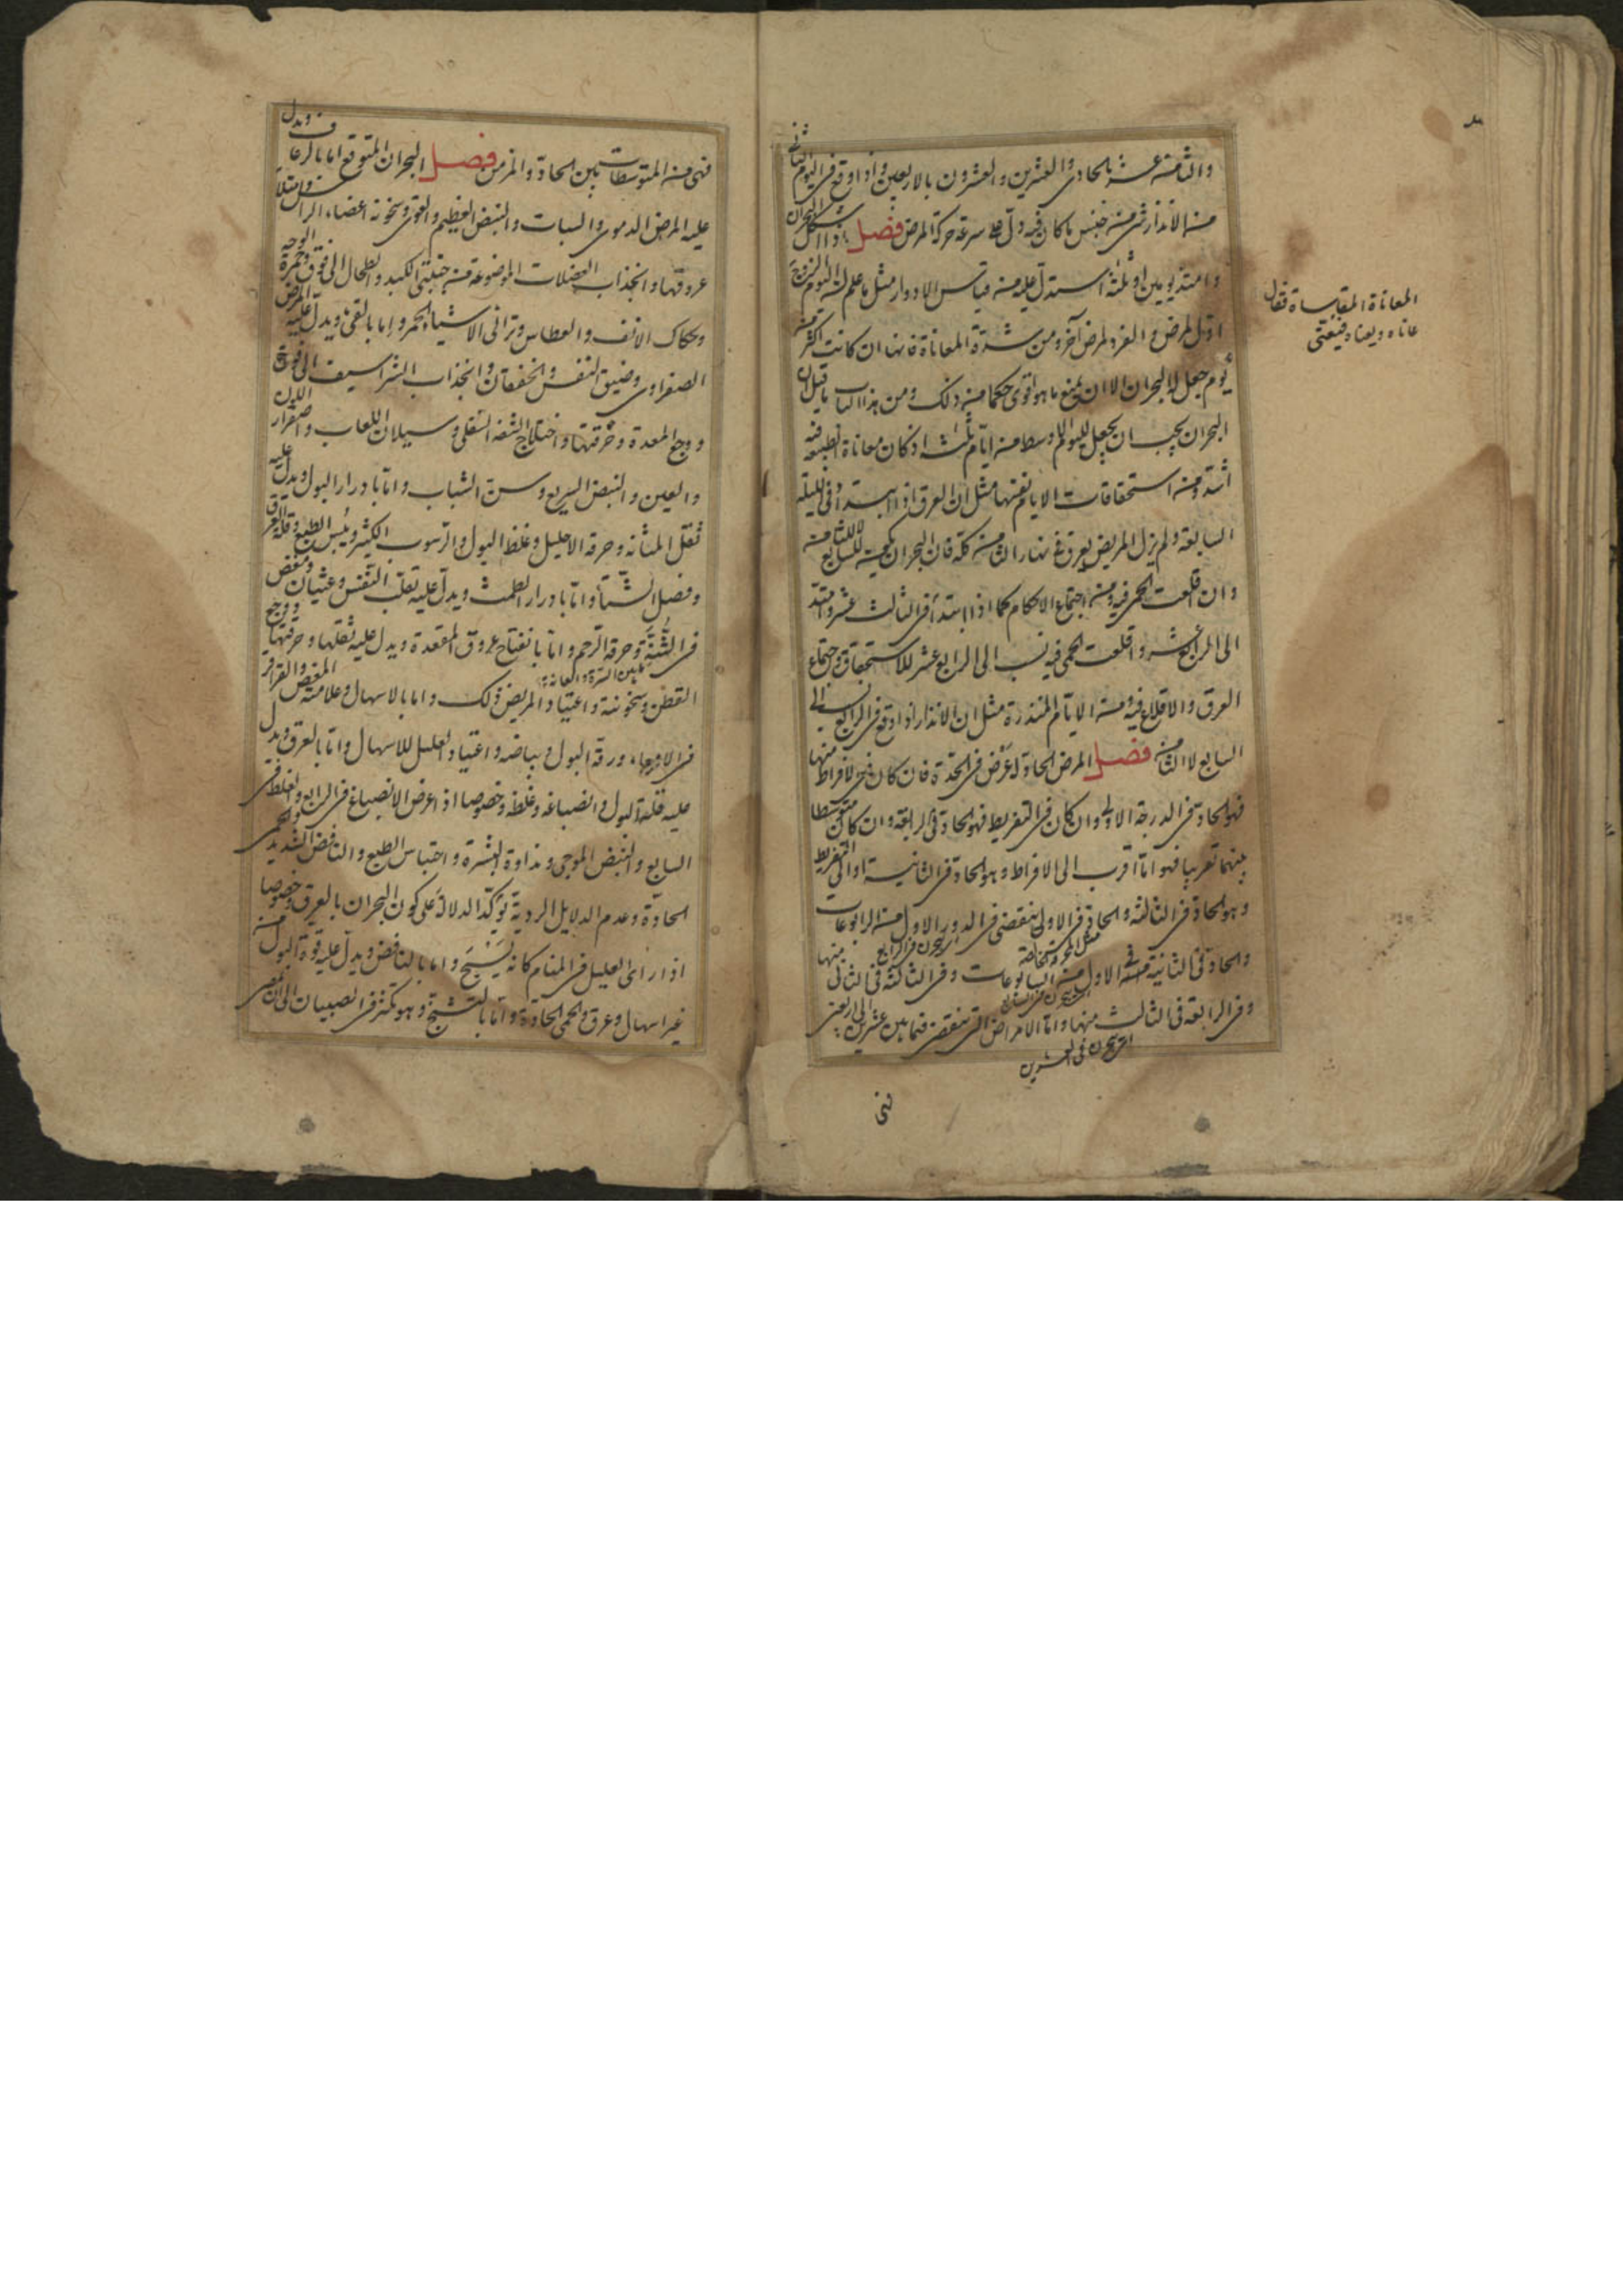 والثامنة عشر بالحادى والعشرين والعشرون بالاربعين واذا وقع فى اليوم الثانى
من الانذار شئ من جنس ما كان فيه دل على سرعة حركة المرض فصل واذا اشكل البحران
وامتد يومين او ثلثة استدل عليه من قياس الادوار مثل ما علم ان اليوم الزوج
اوّل لمرض والفرد لمرض آخر ومن شدة المعاناة فانها ان كانت اكثر فى
يوم جعل له البحران الا ان يمنع ما هو اقوى حكما من ذلك ومن هذا الباب ما قيل ان
البحران يجب ان يجعل لليوم الاوسط من ايّام ثلثة اذ كان معاناة الطبيعة فيه
اشد ومن استحقاقات الايام نفسها مثل ان العرق اذا ابتدأ فى الليلة
السابعة ولم يزل المريض يعرق نهار الثامنة كله فان البحران يكون للسابع لا للثامنة
وان اقلعت الحمى فيه ومن اجتماع الاحكام كما اذا ابتدأ فى الثالث عشر وامتد
الى الرابع عشر واقلعت الحمى فيه نسب الى الرابع عشر للاستحقاق واجتماع
العرق والاقلاع فيه ومن الايام المنذرة مثل ان الانذار اذا وقع فى الرابع نسب الى
السابع لا الثامن فصل المرض الحاد له عرض فى الحدة فان كان فى الافراط منها
فهو الحاد فى الدرجة الاولى وان كان فى التفريط فهو الحاد فى الرابعة وان كان متوسطا
بينهما تقريبا فهو اما اقرب الى الافراط وهو الحاد فى الثانية او الى التفريط
وهو الحاد فى الثالثة والحاد فى الاولى ينقضى فى الدور الاول من الرابوعات
والحاد فى الثانية فى الاول من السابوعات وفى الثالثة فى الثانى منها
وفى الرابعة فى الثالث منها واما الامراض التى تنقضى فيما بين عشرين الى اربعين
فهى
المعاناة المقاساة تقال
عاناه ويعناه فيتعنى
فهى من المتوسطات بين الحادة والمزمن فصل البحران المتوقع اما بالرعاف ويدل
عليه المرض الدموى والسبات والنبض العظيم والقوى وسخونة اعضاء الراس وامتلاء
عروقها وانجذاب العضلات الموضوعة من جنبتى الكبد والطحال الى فوق وحمرة الوجه
وحكاك الانف والعطاس وترائى الاشياء الحمر واما بالقئ ويدل عليه المرض
الصفراوى وضيق النفس والخفقان وانجذاب الشراسيف الى فوق
ووجع المعدة وحرقتها واختلاج الشفة السفلى وسيلان اللعاب واصفرار اللون
والعين والنبض السريع وسن الشباب واما بادرار البول ويدل عليه
ثقل المثانة وحرقة الاحليل وغلظ البول والرسوب الكثير ويبس الطبع وقلة العرق
وفصل الشتاء واما بادرار الطمث ويدل عليه تقلب النفس وغثيان ومغص
فى الثنة وحرقة الرحم واما بانفتاح عروق المقعدة ويدل عليه ثقلها وحرقتها ووجع
ما بين السرة والعانة
القطن وسخونته واعتياد المريض ذلك واما بالاسهال وعلامته المغص والقراقر
فى الامعاء ورقة البول وبياضه واعتياد العليل للاسهال واما بالعرق ويدل
عليه قلة البول وانصباغه وغلظه وخصوصا اذا عرض الانصباغ فى الرابع والغلظ فى
السابع والنبض الموجى ونداوة البشرة واحتباس الطبع والنافض الشديد والحمى
الحادة وعدم الدلايل الردية تؤكد الدلالة على كون البحران بالعرق وخصوصا
اذا راى العليل فى المنام كانه يسبح واما بالنافض ويدل عليه قوة البول من
غير اسهال وعرق والحمى الحادة واما بالتشنج وهو يكثر فى الصبيان الى ان